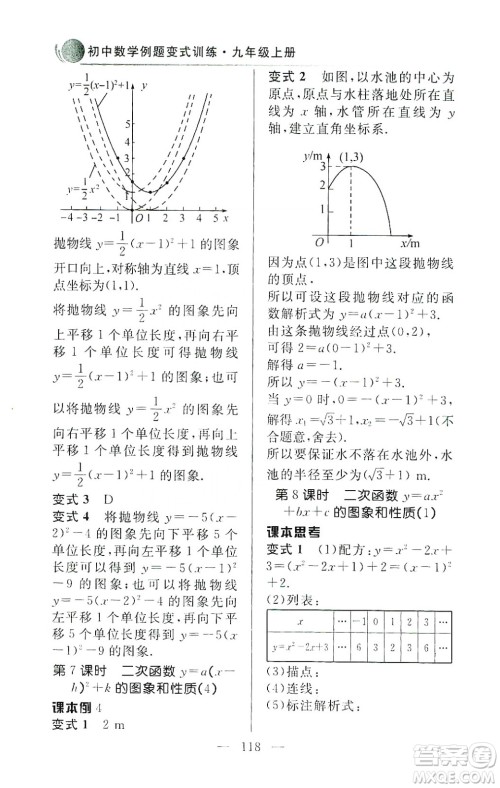 初中数学例题变式训练·九年级上册
y=1/2(x-1)²+1
y
5
4
3
2
1
y=1/2x²
-4 -3 -2 -1 O 1 2 3 4 5 x
抛物线 y=1/2(x-1)²+1 的图象
开口向上,对称轴为直线 x=1,
顶点坐标为(1,1).
将抛物线 y=1/2x² 的图象先向
上平移1个单位长度,再向右
平移1个单位长度得抛物线
y=1/2(x-1)²+1 的图象;也可
以将抛物线 y=1/2x² 的图象先
向右平移1个单位长度,再向
上平移1个单位长度得抛物线
y=1/2(x-1)²+1 的图象.
变式3 D
变式4 将抛物线 y=-5(x-
2)²-4 的图象先向下平移5个
单位长度,再向左平移1个单
位长度得抛物线 y=-5(x-1)²
-9 的图象;也可以将抛物线
y=-5(x-2)²-4 的图象先向
左平移1个单位长度,再向下
平移5个单位长度得抛物线
y=-5(x-1)²-9 的图象.
第7课时 二次函数 y=a(x-
h)²+k 的图象和性质(4)
课本例4
变式1 2 m
变式2 如图,以水池的中心为
原点,原点与水柱落地处所在
直线为 x 轴,水管所在直线为 y
轴,建立直角坐标系.
y/m (1,3)
3
2
1
O 1 x/m
因为点(1,3)是图中这段抛物线
的顶点.
所以可设这段抛物线对应的函
数解析式为 y=a(x-1)²+3.
由这条抛物线经过点(0,2),
可得 2=a(0-1)²+3.
解得 a=-1.
所以 y=-(x-1)²+3.
当 y=0 时,-(x-1)²+3=0.
解得 x₁=√3+1,x₂=-√3+1(不
合题意,舍去).
所以要保证水在水池上方,水
池的半径至少为(√3+1)m.
第8课时 二次函数 y=ax²
+bx+c 的图象和性质(1)
课本思考
变式1 (1)配方:y=x²-2x+
3=x²-2x+1+2=(x-1)²+2.
(2)列表:
x … -1 0 1 2 3 …
y=x²-2x+3 … 6 3 2 3 6 …
(3)描点:
(4)连线:
(5)标注解析式:
118